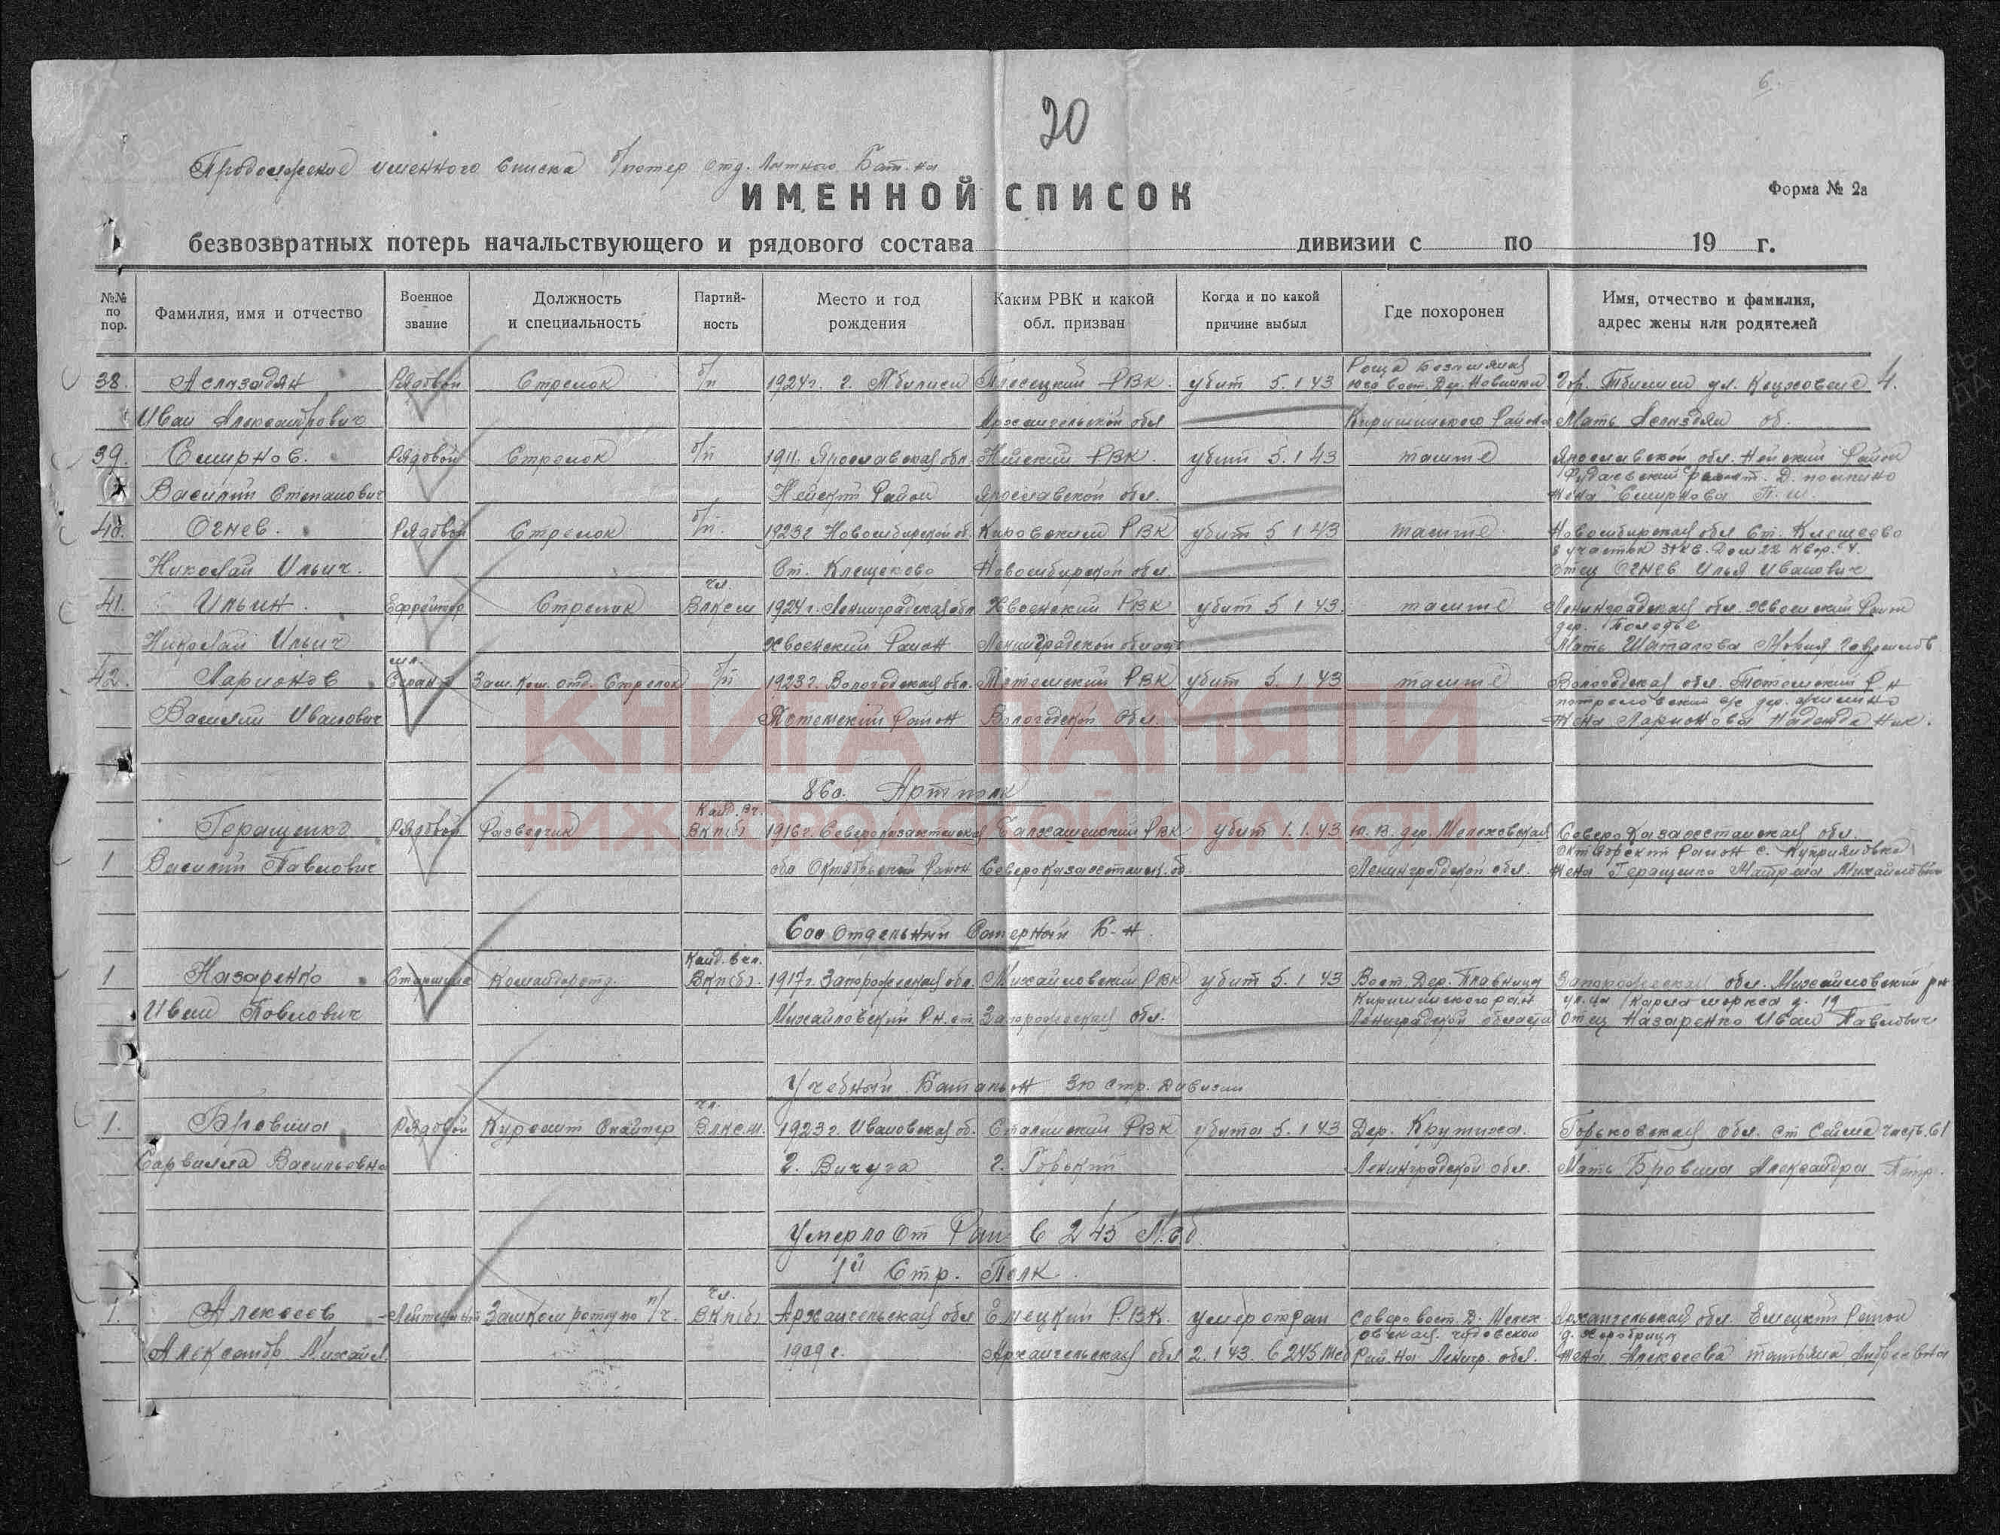 6.
20
Продолжение именного списка б/потер отд. Лыжного Бат-на
ИМЕННОЙ СПИСОК
Форма № 2а
безвозвратных потерь начальствующего и рядового состава дивизии с по 19 г.
№№ по пор. Фамилия, имя и отчество Военное звание Должность и специальность Партий-ность Место и год рождения Каким РВК и какой обл. призван Когда и по какой причине выбыл Где похоронен Имя, отчество и фамилия, адрес жены или родителей
38. Аслазадян Рядовой Стрелок б/п 1924г. г. Тбилиси Плесецкий РВК убит 5.1.43 Роща Безымянная Юго вост. Дер. Новинки Гор. Тбилиси ул. 4.
Иван Александрович Архангельской обл Киришинского Района Мать Аслазадян
39. Смирнов. Рядовой Стрелок б/п 1911. Ярославская обл. Нейский РВК. убит 5.1.43 тамже Ярославской обл. Нейский Район
Василий Степанович Нейский Район Ярославской обл. Жена Смирнова П. И.
40. Огнев. Рядовой Стрелок б/п. 1923г Новосибирской об. Кировский РВК убит 5.1.43 тамже Новосибирская обл Ст. Клещеево
8 участок Дом 22 Квор. 4.
Николай Ильич. Ст. Клещеково Новосибирской обл. Отец Огнев Илья Иванович
41. Ильин. Ефрейтор Стрелок чл. Влксм 1924г. Ленинградская обл Хвоенский РВК убит 5.1.43. тамже Ленинградская обл. Хвоенский Район
дер.
Николай Ильич Хвоенский Район Ленинградской область Мать Шаталова Мария
42. Ларионов мл. Сержант Зам. Ком. отд. Стрелок б/п 1923г. Вологодская обл. Тотемский РВК убит 5.1.43 тамже Вологодская обл. Тотемский Р-н
Василий Иванович Тотемский Район Вологодской Обл. Жена Ларионова Надежда Ник.
860. Артполк
Геращенко Рядовой Разведчик Канд. Вч. ВКП(б) 1916г. Северо казахтанская Балхашенский РВК убит 1.1.43 ю.в. дер. Мелеховская Северо Казахстанская обл.
Октябрский Район с. Куприяновка
1 Василий Павлович обл Октябрьский Район Северо казахстанск. об Ленинградской обл. Жена Геращенко Матрена Михайловна
600 отдельный Саперный Б-н.
1 Назаренко Старшина Командир отд. Канд. в чл. ВКП(б). 1917г. Запорожская обл. Михайловский РВК убит 5.1.43 Вост. Дер. Плавница Запорожская обл. Михайловский р-н
Киришинского рай ул-ца Карла маркса д. 19
Иван Павлович Михайловский Р-н. Запорожская обл. Ленинградской области Отец Назаренко Иван Павлович
Учебный Батальон 310 стр. дивизии
1. Бровина Рядовой Курсант Снайпер чл. Влксм. 1923г. Ивановская об. Сталинский РВК убита 5.1.43 Дер. Крутиха. Горьковская обл. ст Сейма часть. 61
Васильевна г. Вичуга г. Горький Ленинградской обл. Мать Бровина Александра Петр.
Умерло от Ран в 245 М.с.б.
1й Стр. Полк.
1. Алексеев Лейтенант Замком роты по п/ч. чл. ВКП(б) Архангельская обл Емецкий РВК. умер от ран Северо вост. Д. Мелеховская Чудовской Архангельская обл. Емецкий Район
Александр Михайл. 1909г. Архангельская обл 2.1.43. в 245 мсб Рай-на Ленигр. обл. Жена Алексеева Татьяна Андреевна
КНИГА ПАМЯТИ
НИЖЕГОРОДСКОЙ ОБЛАСТИ